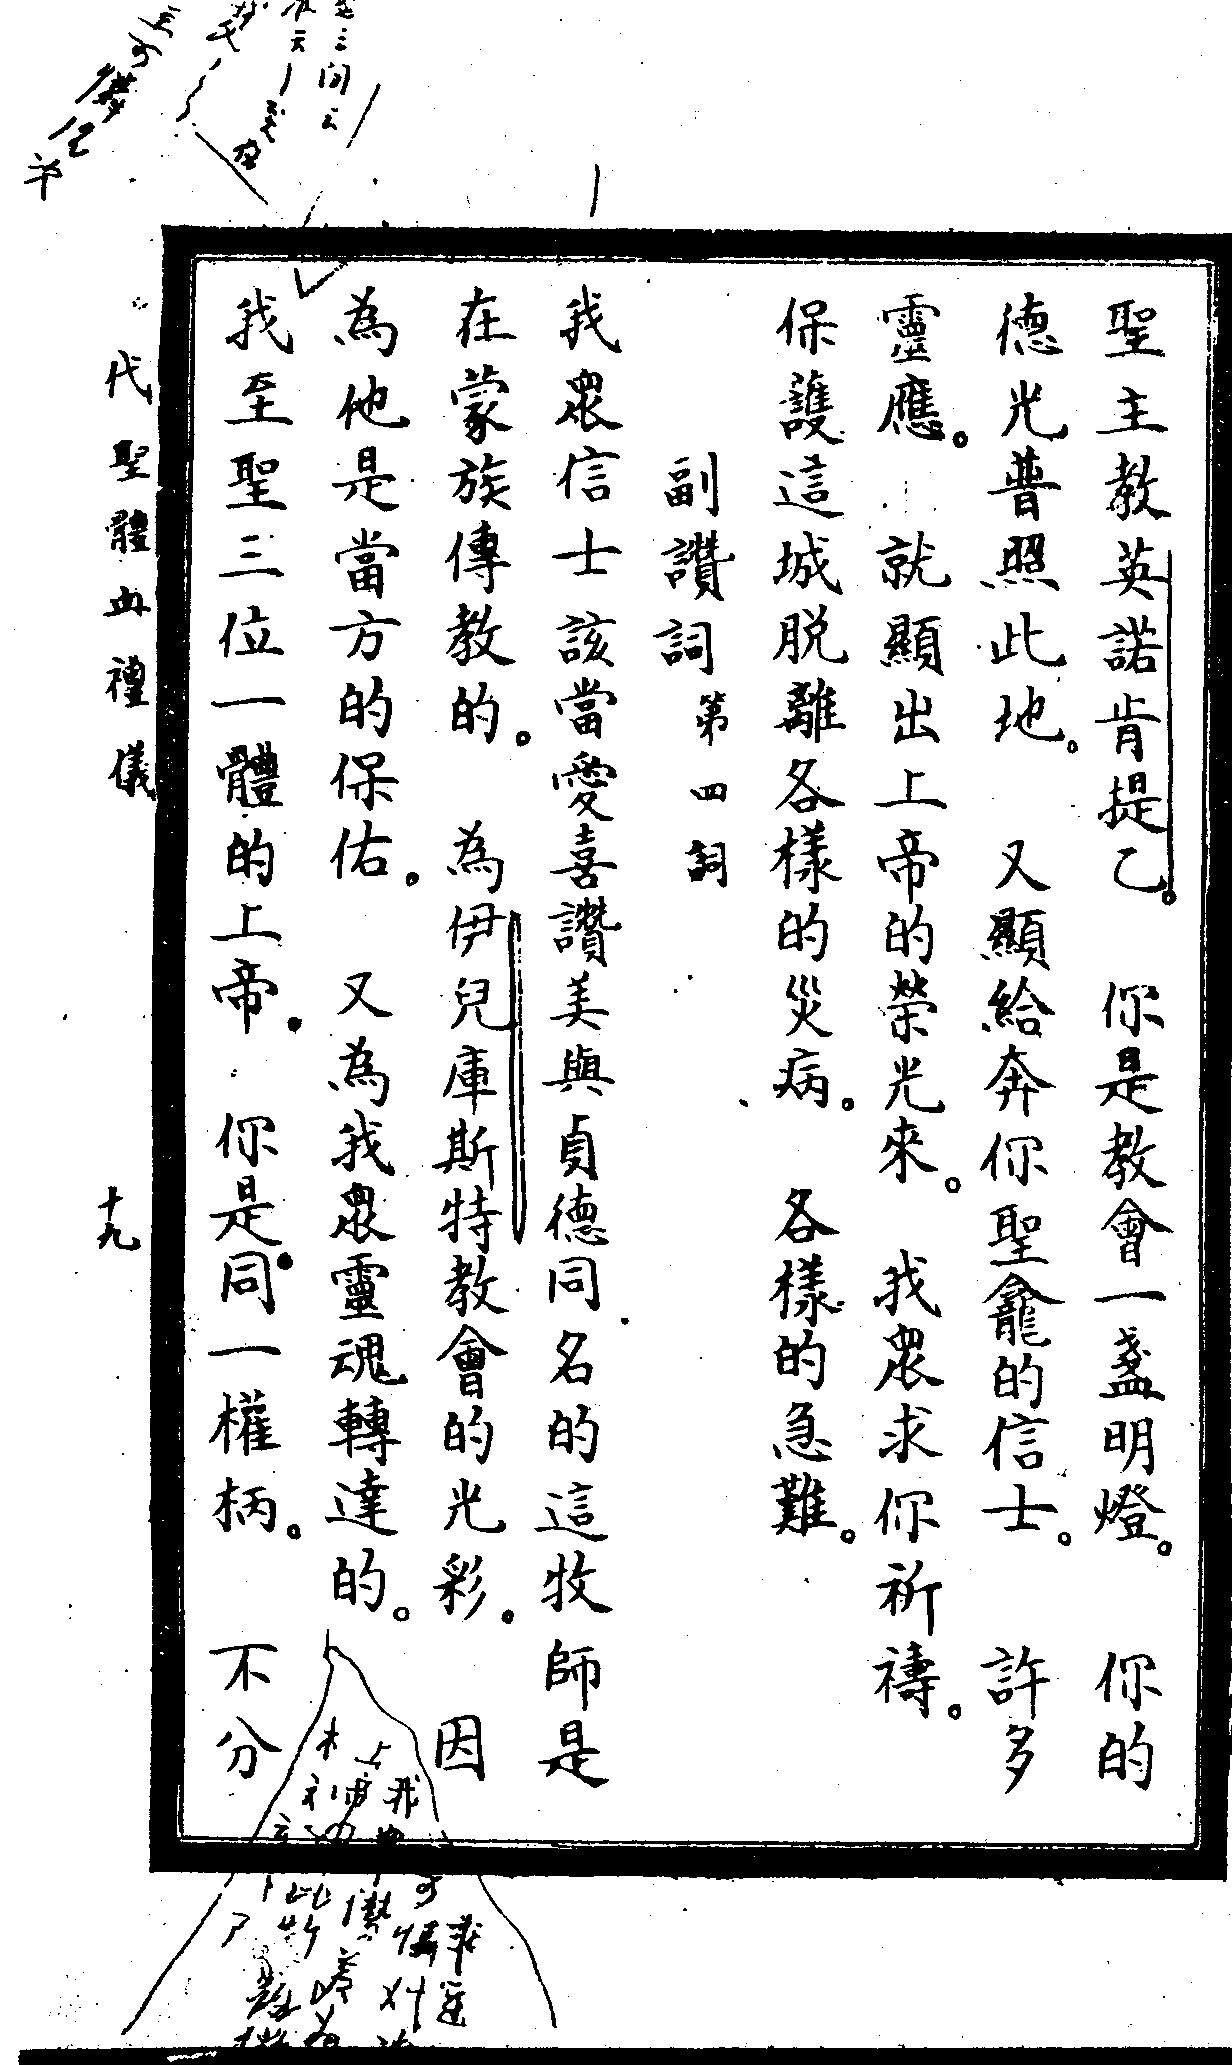 聖主教英諾肯提乙。　你是教會一盞明燈。　你的
德光普照此地。　又顯給奔你聖龕的信士。　許多
靈應。　就顯出上帝的榮光來。　我眾求你祈禱。
保護這城脫離各樣的災病。　各樣的急難。
副讚詞 第四詞
我眾信士該當愛喜讚美與貞德同名的這牧師是
在蒙族傳教的。　為伊兒庫斯特教會的光彩。　因
為他是當方的保佑。　又為我眾靈魂轉達的。
我至聖三位一體的上帝。　你是同一權柄。　不分
代聖體血禮儀
十九